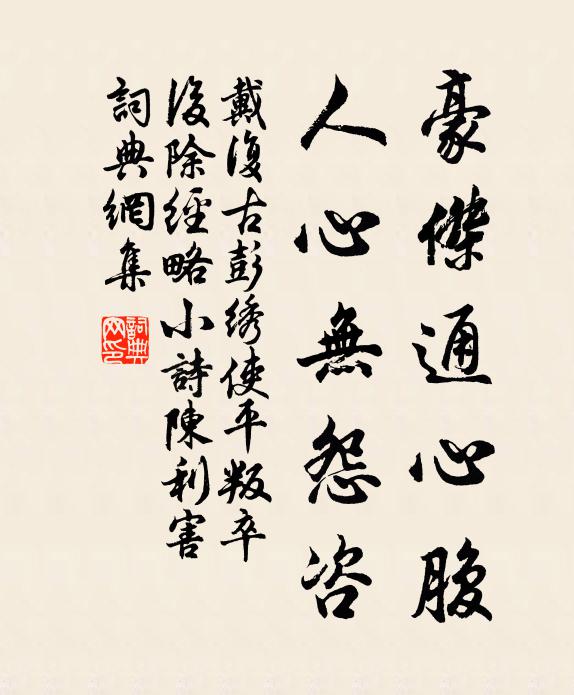 豪傑通心腹
人心無怨咨
戴復古彭绣使平叛卒
後除經略小詩陳利害
詞典網集
詞典网印